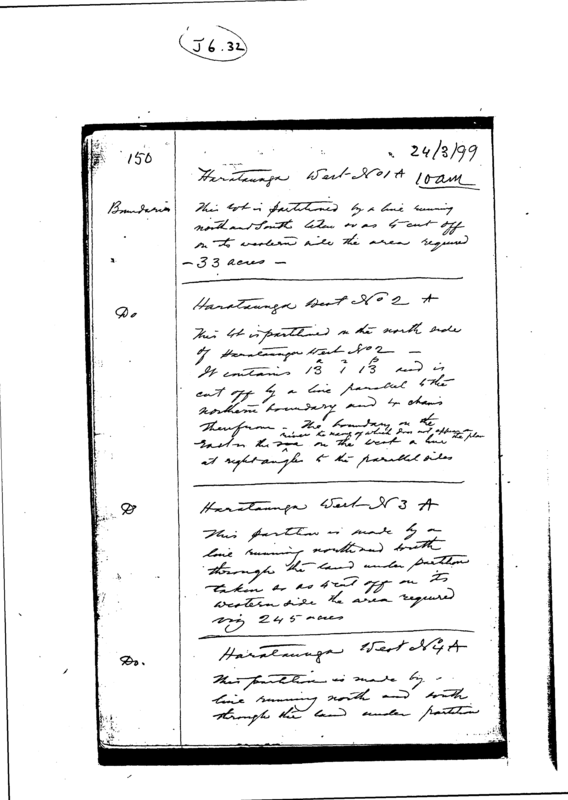 J 6.32
150
24/3/99
Harataunga West No 1 A 10 am
Boundaries This lot is partitioned by a line running
north and South taken so as to cut off
on its western side the area required
- 33 acres -
Do Harataunga West No 2 A
This lot is partitioned on the north side
of Harataunga West No 2 -
It contains 13 1 13 and is
cut off by a line parallel to the
northern boundary and 4 chains
therefrom - The boundary on the
river the name of which does not appear on the plan
East is the on the west a line
at right angles to the parallel sides
Do Harataunga West No 3 A
This partition is made by a
line running north and south
through the land under partition
taken so as to cut off on its
western side the area required
viz 245 acres
Do. Harataunga West No 4 A
This partition is made by a
line running north and south
through the land under partition